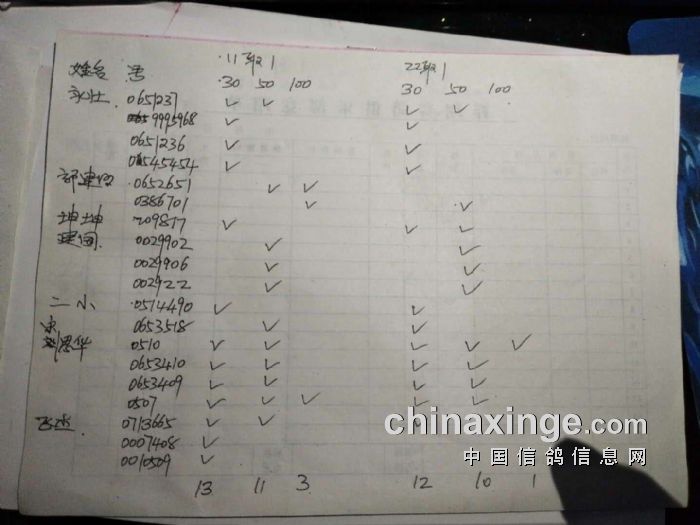 11取1 22取1
姓名 30 50 100 30 50 100
永壮 0651237 ✓ ✓ ✓ ✓
9995968 ✓ ✓
0651236 ✓ ✓
0545454 ✓ ✓
0652651 ✓ ✓
0386701 ✓ ✓
坤坤 209817 ✓ ✓ ✓
0029902 ✓ ✓
0029906 ✓ ✓
002922 ✓ ✓
二小 0514490 ✓ ✓
0653518 ✓ ✓
华 0510 ✓ ✓ ✓ ✓ ✓
0653410 ✓ ✓ ✓ ✓
0653409 ✓ ✓ ✓ ✓
0507 ✓ ✓ ✓ ✓ ✓
0713665 ✓ ✓
0007408 ✓
0010509 ✓
13 11 3 12 10 1
chinaxinge.com
中国信鸽信息网